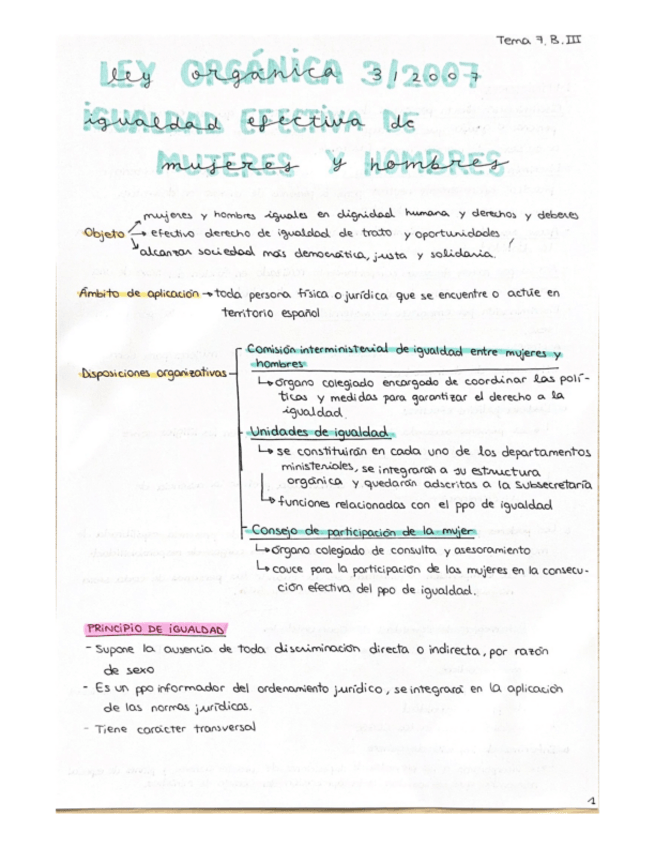 Tema 7. B. III
LEY ORGÁNICA 3/2007
IGUALDAD EFECTIVA DE
MUJERES Y HOMBRES
Objeto → mujeres y hombres iguales en dignidad humana y derechos y deberes
→ efectivo derecho de igualdad de trato y oportunidades
→ alcanzar sociedad más democrática, justa y solidaria.
Ámbito de aplicación → toda persona física o jurídica que se encuentre o actúe en
territorio español
Disposiciones organizativas
Comisión interministerial de igualdad entre mujeres y
hombres
↳ órgano colegiado encargado de coordinar las polí-
ticas y medidas para garantizar el derecho a la
igualdad.
Unidades de igualdad
↳ se constituirán en cada uno de los departamentos
ministeriales, se integrarán a su estructura
orgánica y quedarán adscritas a la Subsecretaría
↳ funciones relacionadas con el ppo de igualdad
Consejo de participación de la mujer
↳ órgano colegiado de consulta y asesoramiento
↳ cauce para la participación de las mujeres en la consecu-
ción efectiva del ppo de igualdad.
PRINCIPIO DE IGUALDAD
- Supone la ausencia de toda discriminación directa o indirecta, por razón
de sexo
- Es un ppo informador del ordenamiento jurídico, se integrará en la aplicación
de las normas jurídicas.
- Tiene carácter transversal
1